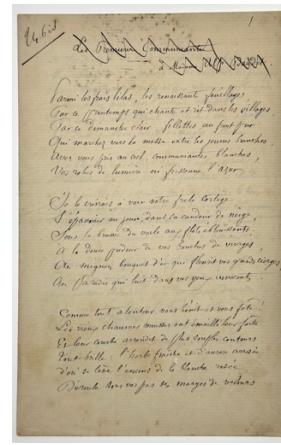 24 bis
1
Les Premières Communiantes
à
Parmi les frais lilas, les renaissants feuillages
Par ce printemps qui chante et rit dans les villages
Par ce dimanche clair, fillettes au front pur
Qui marchez vers la messe entre les jeunes branches,
Avez vous pris au ciel, communiantes blanches,
Vos robes de lumière où frissonne l'azur
Je le croirais à voir votre frêle cortège
S'épanouir au jour dans sa candeur de neige,
Sous la brume du voile aux plis
À la douce pudeur de vos bouches de vierges
Aux mignons bouquets d'or qui fleurit vos grands cierges
Au Paradis qui luit dans vos yeux innocents
Comme tout alentour vous bénit et vous fête !
Les vieux chaumes moussus ont leur faîte
Et leur courbe arrondit de plus souples contours
brille l'herbe fraîche et d'aurore
d'où se lève l'encens de la blanche rosée
Déroule sous vos pas des marges de velours